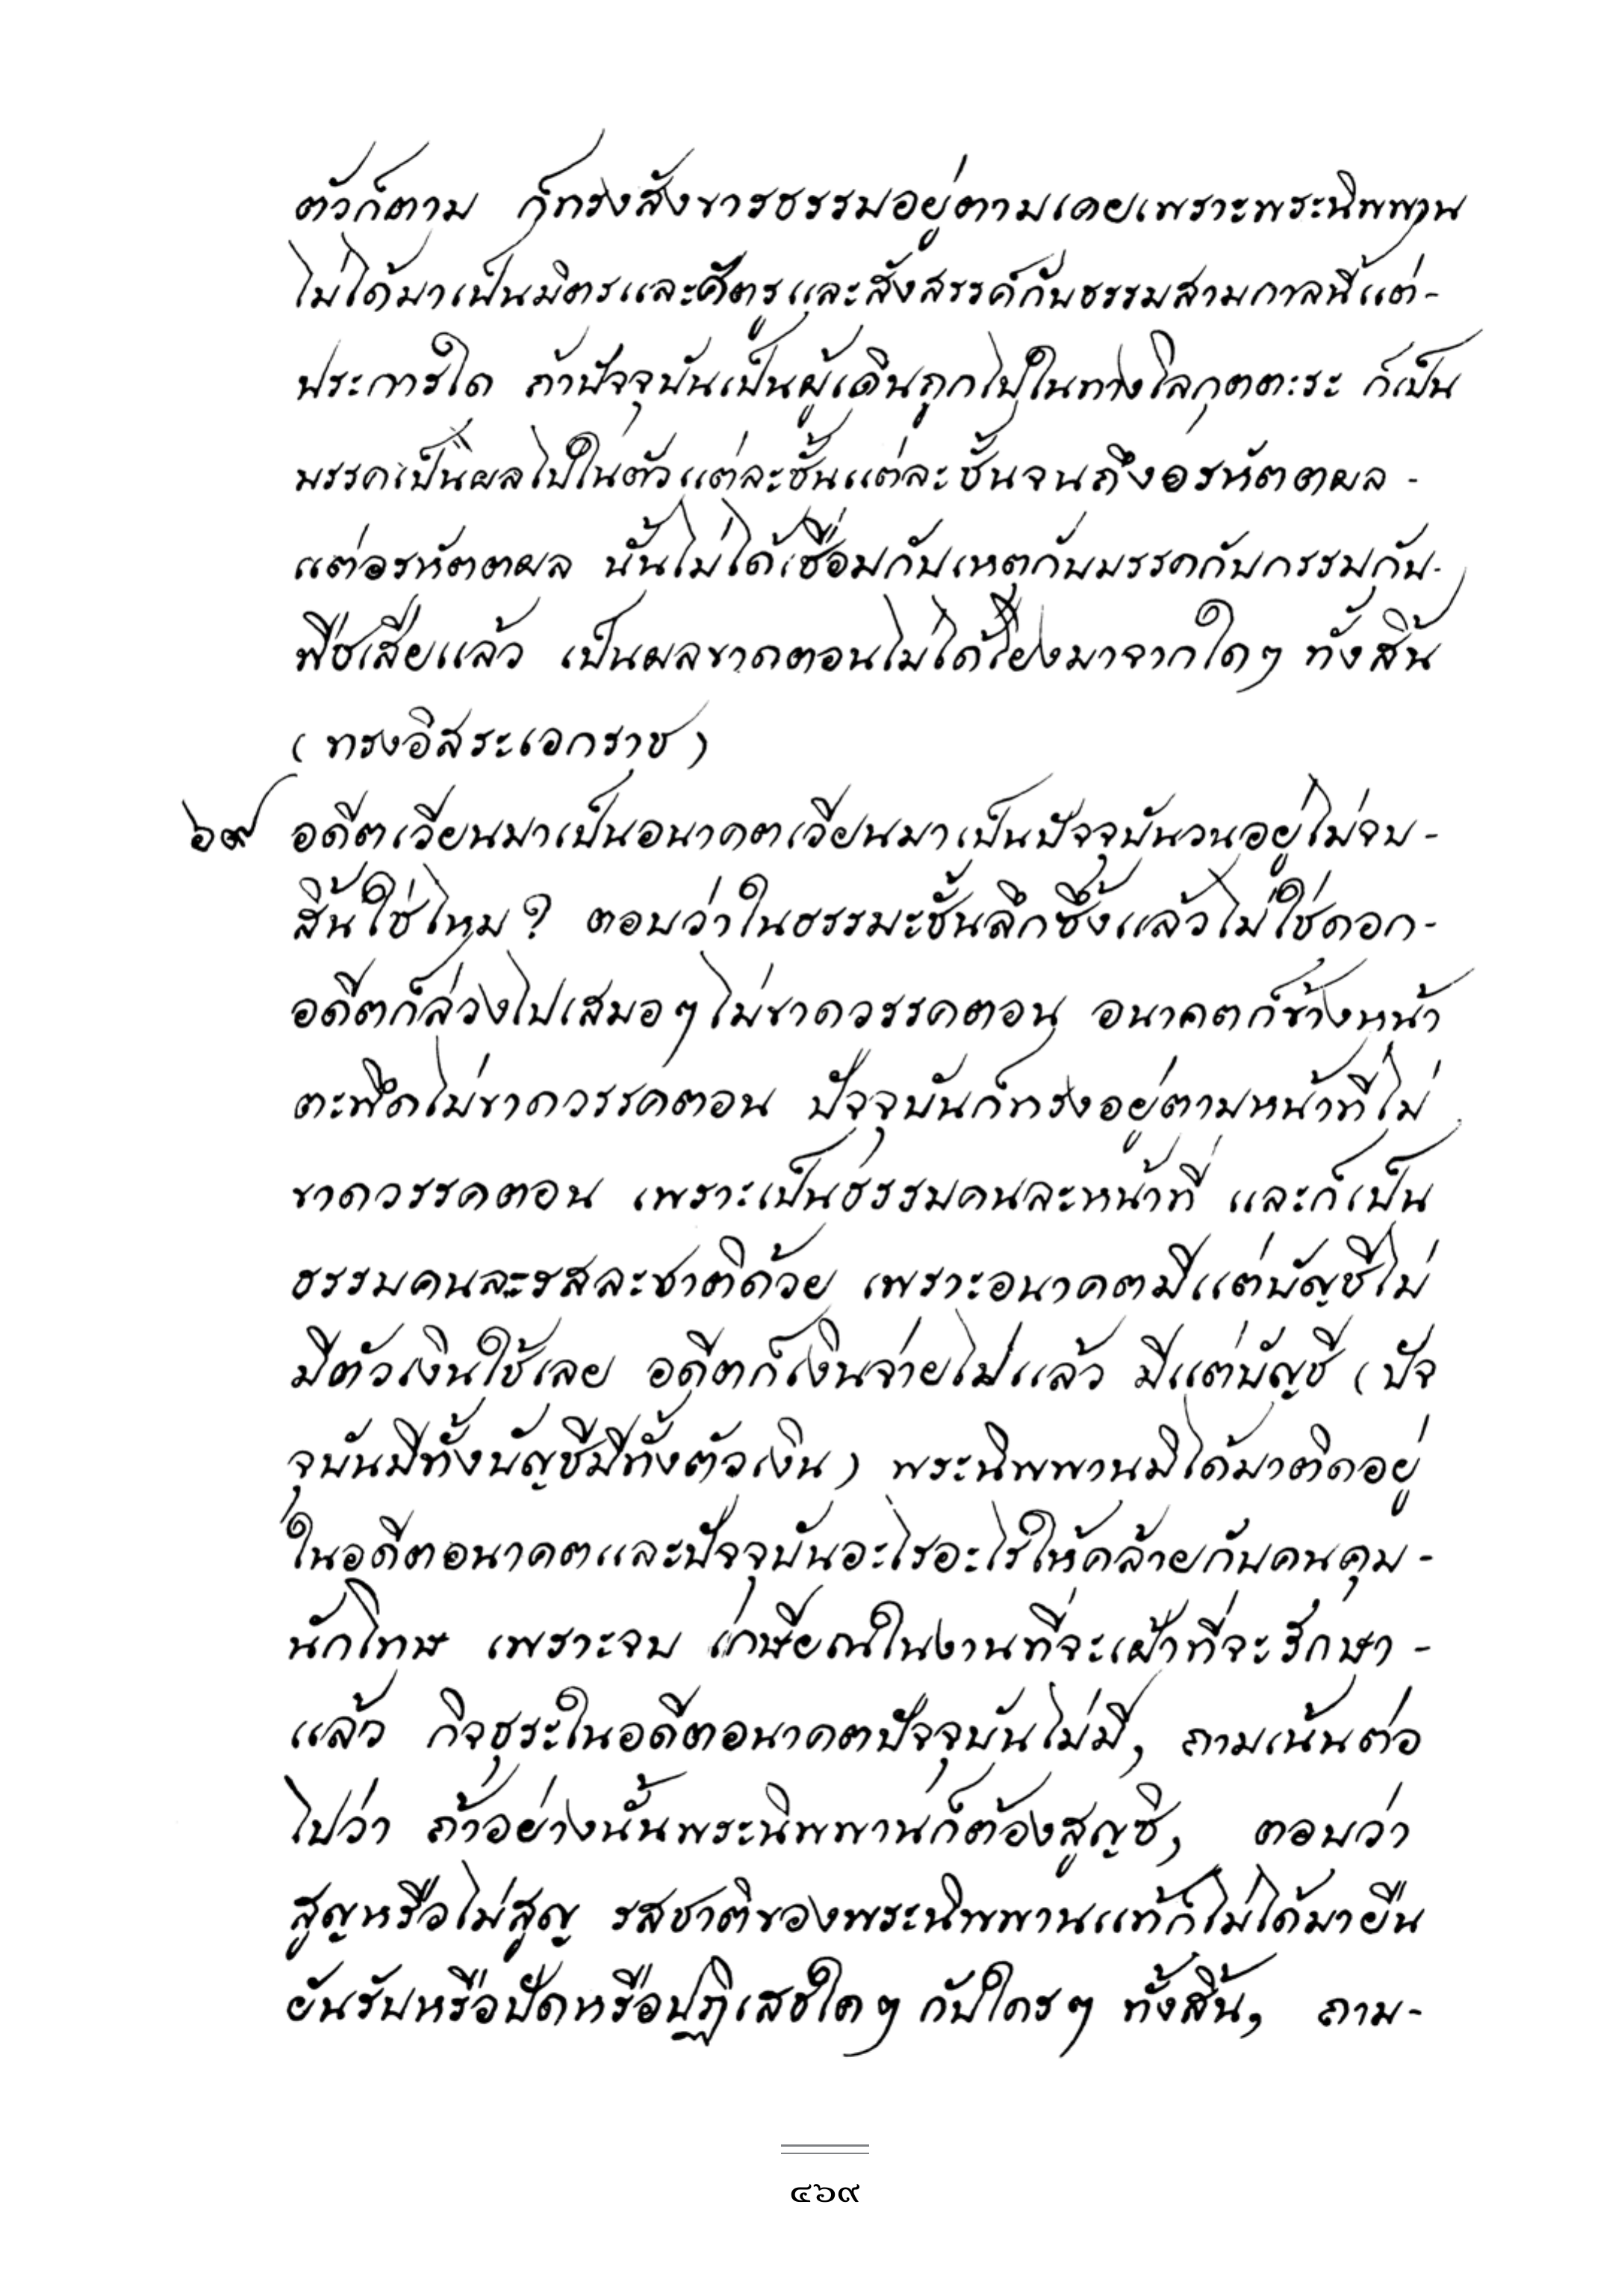 ตัวก็ตาม ก็ทรงสังขารธรรมอยู่ตามเคยเพราะพระนิพพาน
ไม่ได้มาเป็นมิตรและศัตรูและสังสรรค์กับธรรมสามกาลนี้แต่-
ประการใด ถ้าปัจจุบันเป็นผู้เดินถูกไปในทางโลกุตตะระ ก็เป็น
มรรคเป็นผลไปในตัวแต่ละชั้นแต่ละชั้นจนถึงอรหัตตผล -
แต่อรหัตตผล นั้นไม่ได้เชื่อมกับเหตุกับมรรคกับกรรมกับ-
พืชเสียแล้ว เป็นผลขาดตอนไม่ได้โยงมาจากใดๆ ทั้งสิ้น
(ทรงอิสระเอกราช)
๖๙ อดีตเวียนมาเป็นอนาคตเวียนมาเป็นปัจจุบันวนอยู่ไม่จบ-
สิ้นใช่ไหม? ตอบว่าในธรรมะชั้นลึกซึ้งแล้วไม่ใช่ดอก-
อดีตก็ล่วงไปเสมอๆ ไม่ขาดวรรคตอน อนาคตก็ข้างหน้า
ตะพึดไม่ขาดวรรคตอน ปัจจุบันก็ทรงอยู่ตามหน้าที่ไม่
ขาดวรรคตอน เพราะเป็นธรรมคนละหน้าที่ และก็เป็น
ธรรมคนละรสละชาติด้วย เพราะอนาคตมีแต่บัญชีไม่
มีตัวเงินใช้เลย อดีตก็เงินจ่ายไปแล้ว มีแต่บัญชี (ปัจ
จุบันมีทั้งบัญชีมีทั้งตัวเงิน) พระนิพพานมิได้มาติดอยู่
ในอดีตอนาคตและปัจจุบันอะไรอะไรให้คล้ายกับคนคุม -
นักโทษ เพราะจบ เกษียณในงานที่จะเฝ้าที่จะรักษา -
แล้ว กิจธุระในอดีตอนาคตปัจจุบันไม่มี, ถามเน้นต่อ
ไปว่า ถ้าอย่างนั้นพระนิพพานก็ต้องสูญซิ, ตอบว่า
สูญหรือไม่สูญ รสชาติของพระนิพพานแท้ก็ไม่ได้มายืน
ยันรับหรือปัดหรือปฏิเสธใดๆ กับใครๆ ทั้งสิ้น, ถาม-
๔๖๙